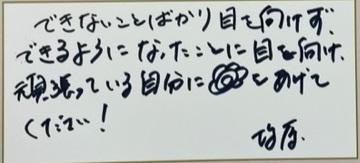 できないことばかり目を向けず、
できるようになったことに目を向け、
頑張っている自分に をあげて
ください!